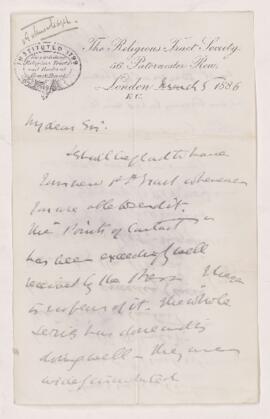 INSTITUTED 1799
The Religious Tract Society.
56 Paternoster Row,
London March 5 1886
E.C.
My dear Sir,
I shall be glad to have
your new
Tract whenever
you are able to send it.
The "Points of Contact"
has been exceedingly well
received by the Press
of it. The whole
series has done and is
doing well - they are
widely circulated